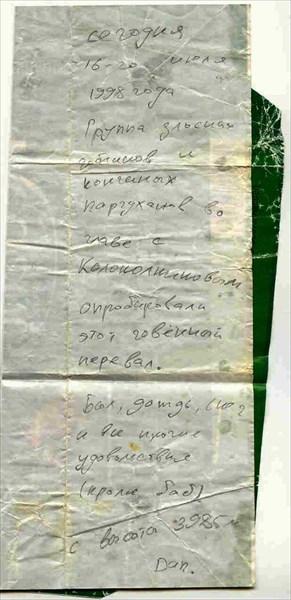 сегодня
16-го июля
1998 года
Группа
и
конченых
во
главе с
Колокольниковым
опробировали
этот говённый
перевал.
Был, дождь, снег
и все прочие
удовольствие
(кроме баб)
с высота 3985 м
Dan.